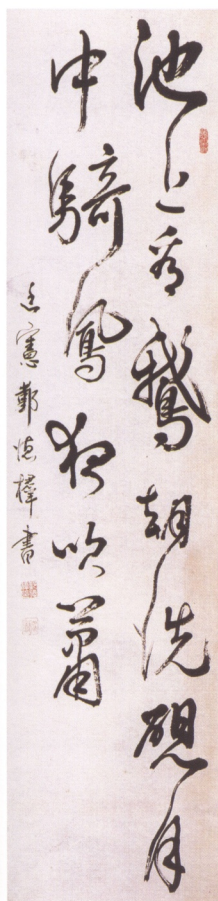 池上看鵝朝洗硯月
中騎鳳夜吹蕭
憲鄭樺書